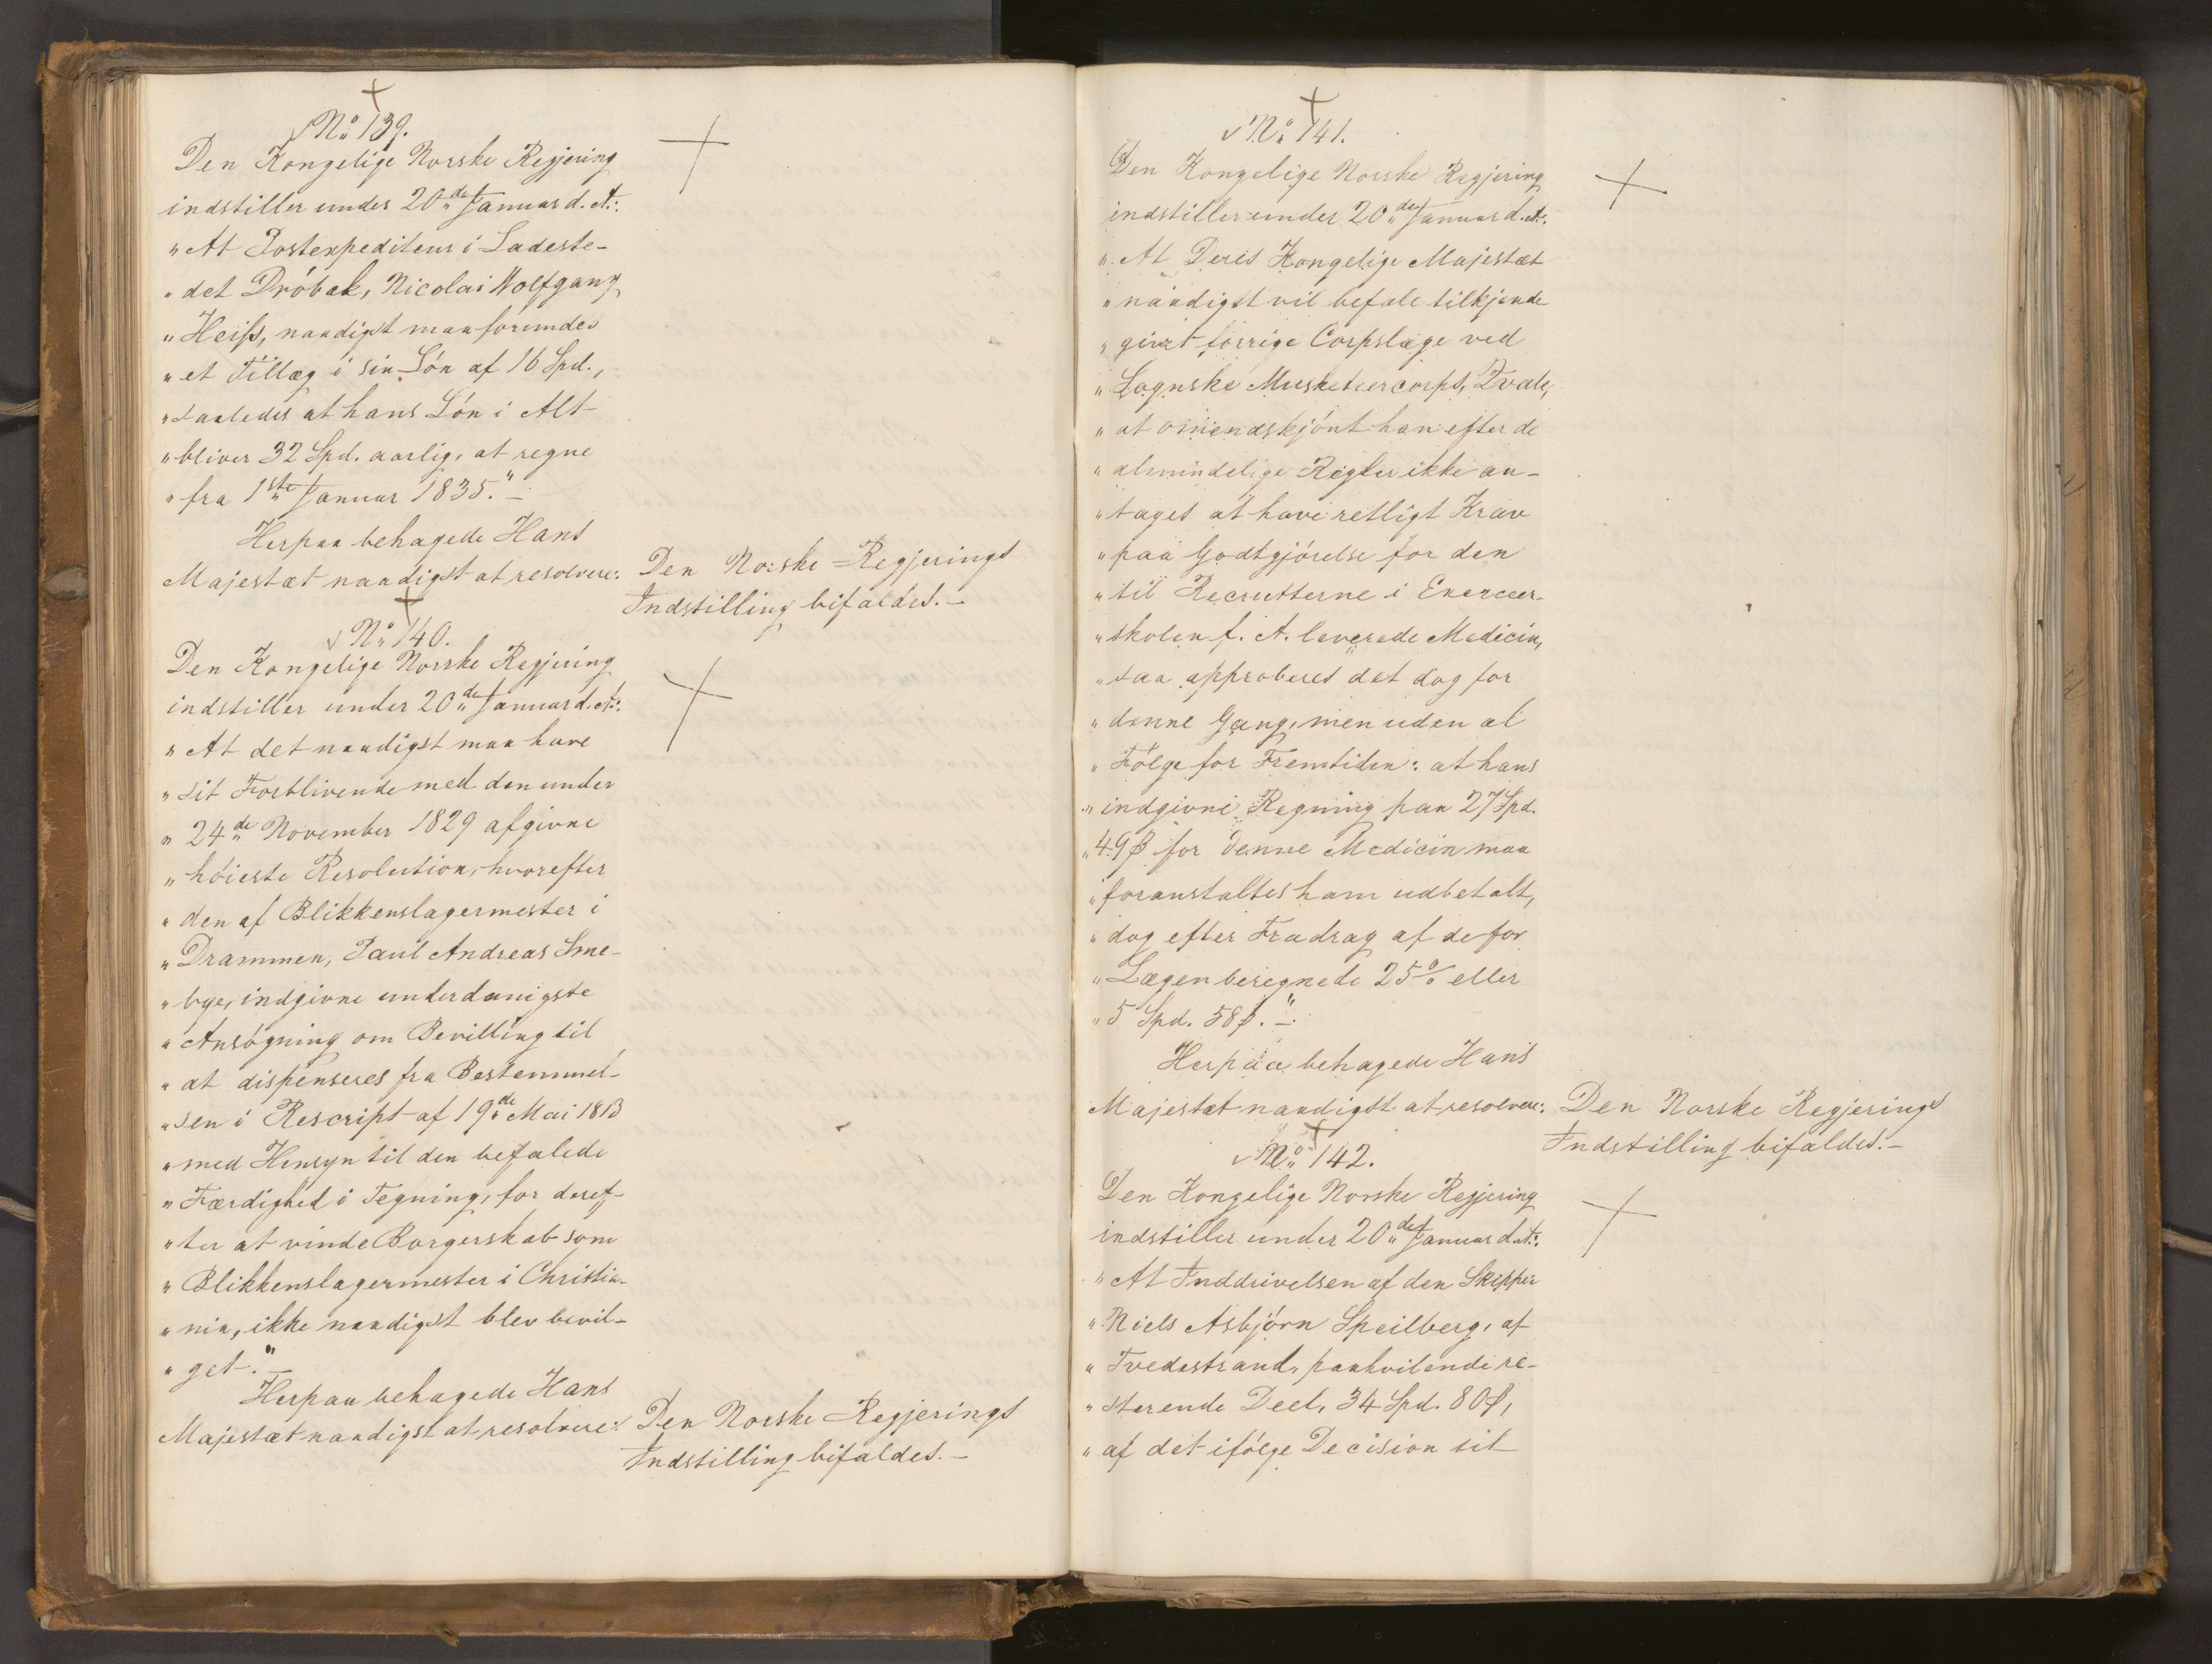 No 139.
Den Kongelige Norske Regjering
indstiller under 20de Januar d. A.:
"At Postexpediteur i Ladeste-
"det Dröbak, Nicolai Wolfgang
"Heiss, naadigst maa forundes
"et Tillæg i sin Lön af 16 Spd.,
"saaledes at hans Lön i Alt
"bliver 32 Spd. aarlig, at regne
"fra 1ste Januar 1835."-
Herpaa behagede Hans
Majestæt naadigst at resolvere:
Den Norske Regjerings
Indstilling bifaldes.-
No 140.
Den Kongelige Norske Regjering
indstiller under 20de Januar d. A.:
"At det naadigst maa have
"sit Forblivende med den under
"24de November 1829 afgivne
"höieste Resolution, hvorefter
"den af Blikkenslagermester i
"Drammen, Paul Andreas Sme-
"bye, indgivne underdanigste
"Ansögning om Bevilling til
"at dispenseres fra Bestemmel-
"sen i Rescript af 19de Mai 1813
"med Hensyn til den befalede
"Færdighed i Tegning, for deref-
"ter at vinde Borgerskab som
"Blikkenslagermester i Christia-
"nia, ikke naadigst blev bevil-
"get."-
Herpaa behagede Hans
Majestæt naadigst at resolvere:
Den Norske Regjerings
Indstilling bifaldes.-
No 141.
Den Kongelige Norske Regjering
indstiller under 20de Januar d. A.:
"At Deres Kongelige Majestæt
"naadigst vil befale tilkjende-
"givet forrige Corpslæge ved
"Sognske Musketeercorps, Qvale,
"at omendskjönt han efter de
"almindelige Regler ikke an-
"tages at have retligt Krav
"paa Godtgjörelse for den
"til Recrutterne i Exerceer-
"skolen f. A. leverede Medicin,
"saa approberes det dog for
"denne Gang, men uden al
"Fölge for Fremtiden: at hans
"indgivne Regning paa 27 Spd.
"49 ß for denne Medicin maa
"foranstaltes ham udbetalt,
"dog efter Fradrag af de for
"Lægen beregnede 25 % eller
"5 Spd. 58 ß."-
Herpaa behagede Hans
Majestæt naadigst at resolvere:
Den Norske Regjerings
Indstilling bifaldes.-
No 142.
Den Kongelige Norske Regjering
indstiller under 20de Januar d. A.:
"At Inddrivelsen af den Skipper
"Niels Asbjörn Speilberg, af
"Tvedestrand, paahvilende re-
"sterende Deel, 34 Spd. 80 ß,
"af det ifölge Decision til